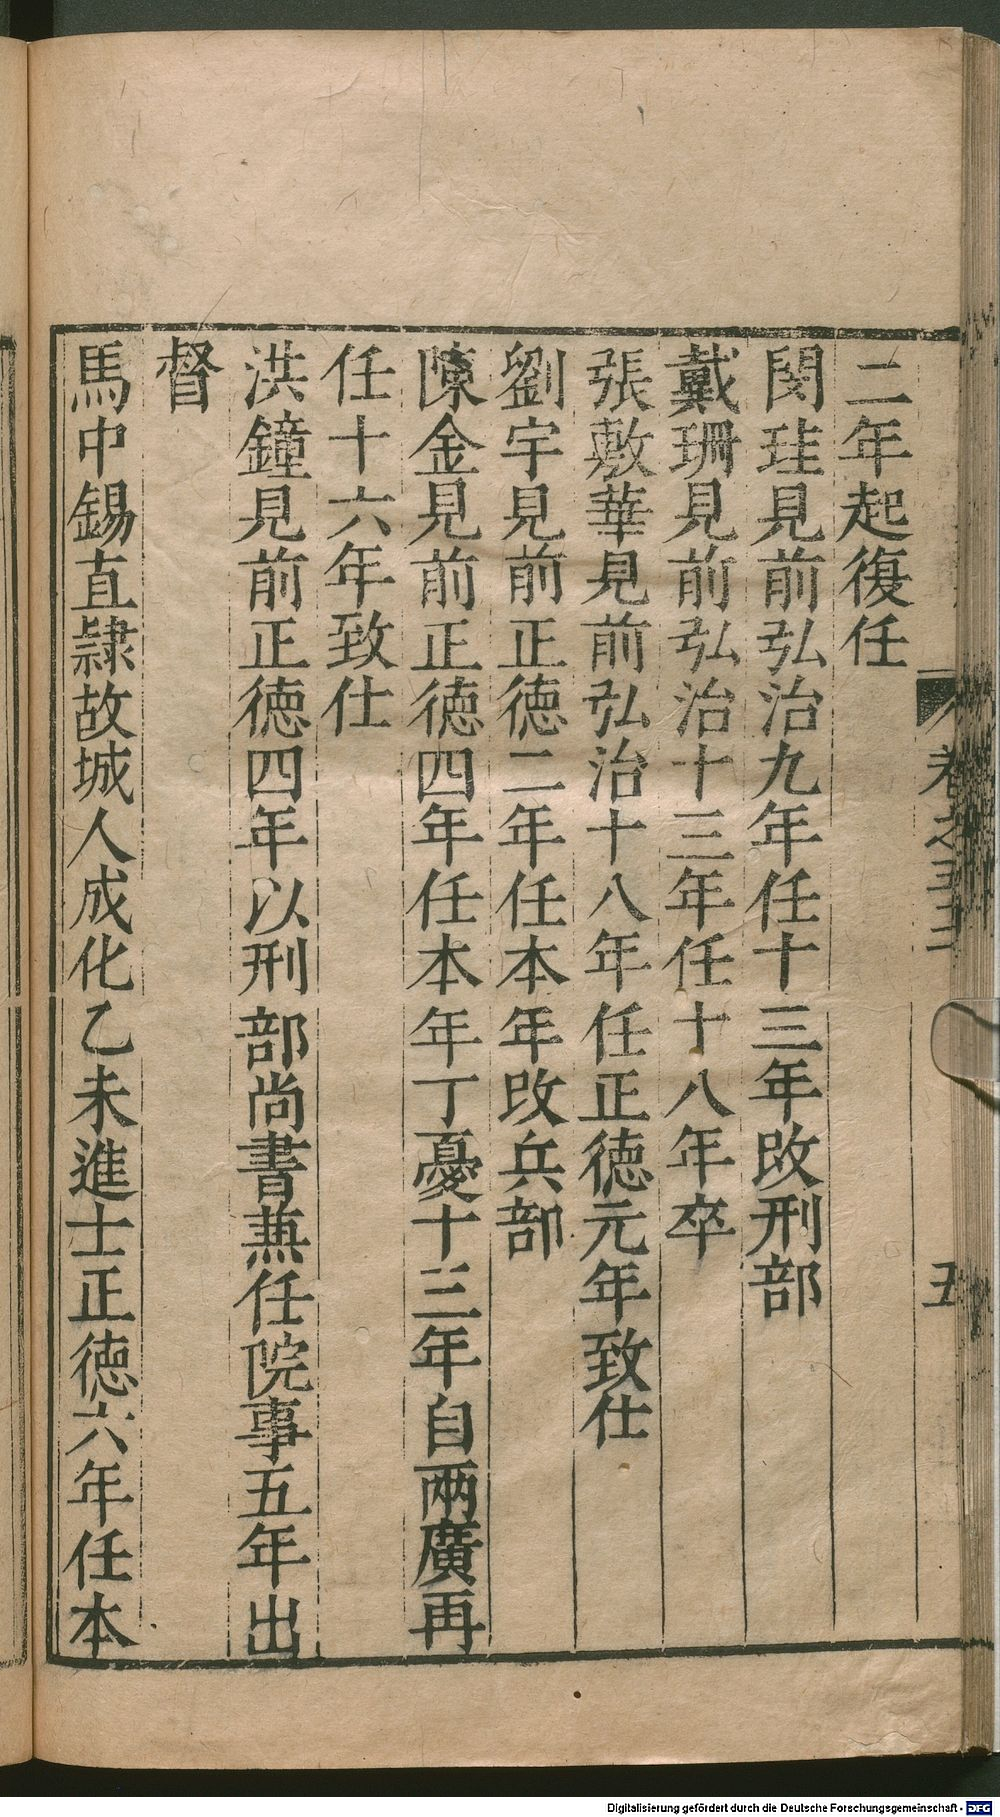 二年起復任
閔珪見前弘治九年任十三年改刑部
戴珊見前弘治十三年任十八年卒
張敷華見前弘治十八年任正德元年致仕
劉宇見前正德二年任本年改兵部
陳金見前正德四年任本年丁憂十三年自兩廣再
任十六年致仕
洪鐘見前正德四年以刑部尚書兼任院事五年出
督
馬中錫直隸故城人成化乙未進士正德六年任本
卷之
五
Digitalisierung gefördert durch die Deutsche Forschungsgemeinschaft - DFG